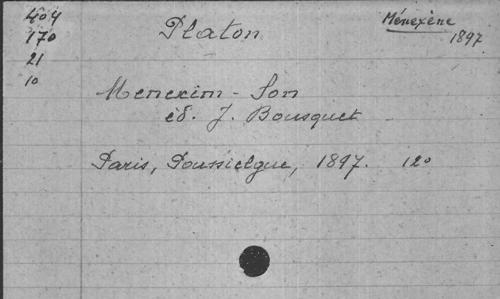 404
170
21
10
Platon
Ménexène
1897
Menexim - Son
éd. J. Bousquet
Paris, Poussielgue, 1897. 12°